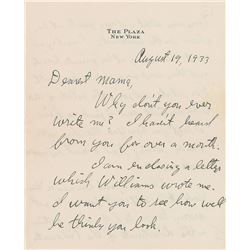 THE PLAZA
NEW YORK
August 19, 1933
Dearest Mama,
Why don't you ever
write me? I hav'nt heard
from you for over a month.
I am enclosing a letter
which Williams wrote me.
I want you to see how well
he thinks you look.